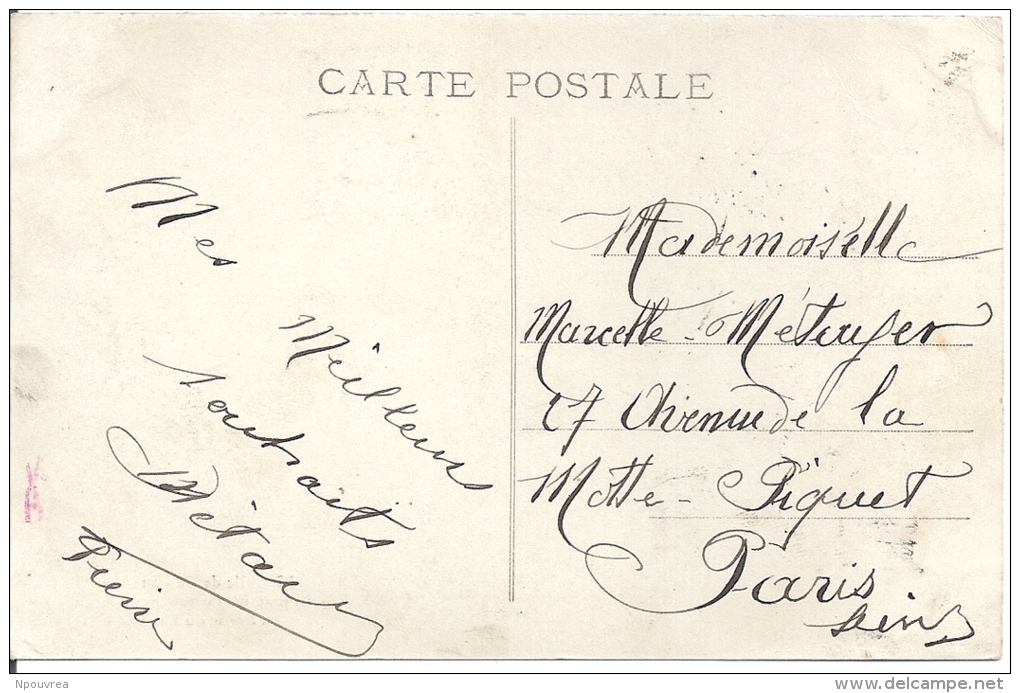 CARTE POSTALE
Mes
Meilleurs
souhaits
Pierre
Mademoiselle
Marcelle Métayer
27 Avenue de la
Motte-Piquet
Paris
Seine
Npouvrea
www.delcampe.net